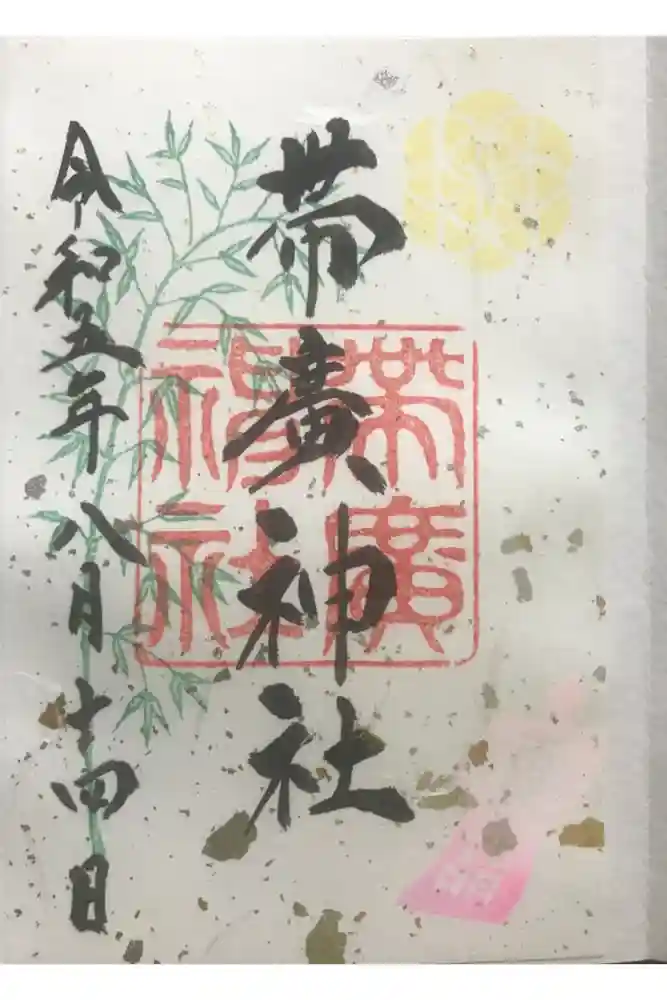 帯廣神社
帯廣神社
令和五年八月十四日